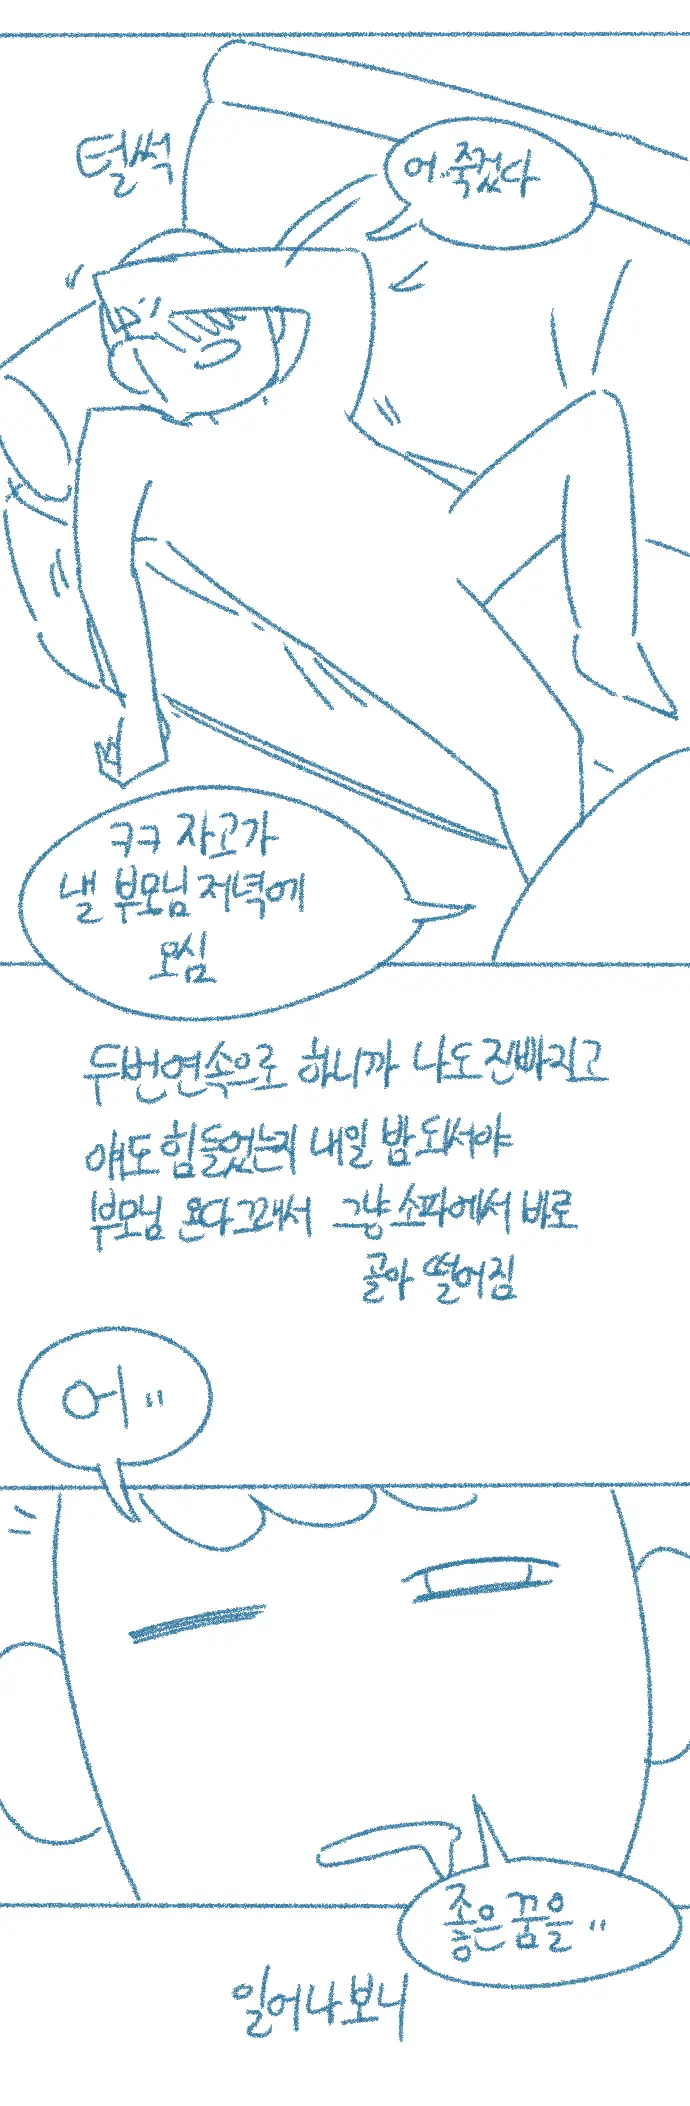 털썩
어..죽겄다
ㅋㅋ 자고가
낼 부모님 저녁에
오심
두번연속으로 하니까 나도 진빠지고
얘도 힘들었는지 내일 밤 되서야
부모님 온다 그래서 그냥 소파에서 바로
골아 떨어짐
어..
좋은 꿈을..
일어나보니